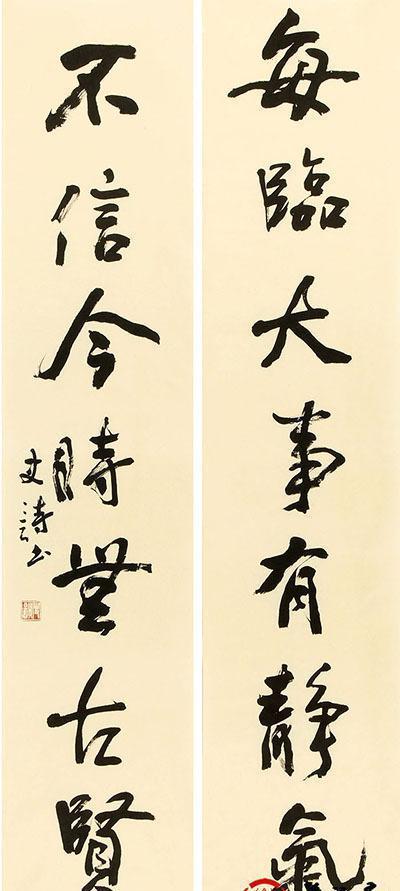 每臨大事有靜氣
不信今時無古賢
文詩書